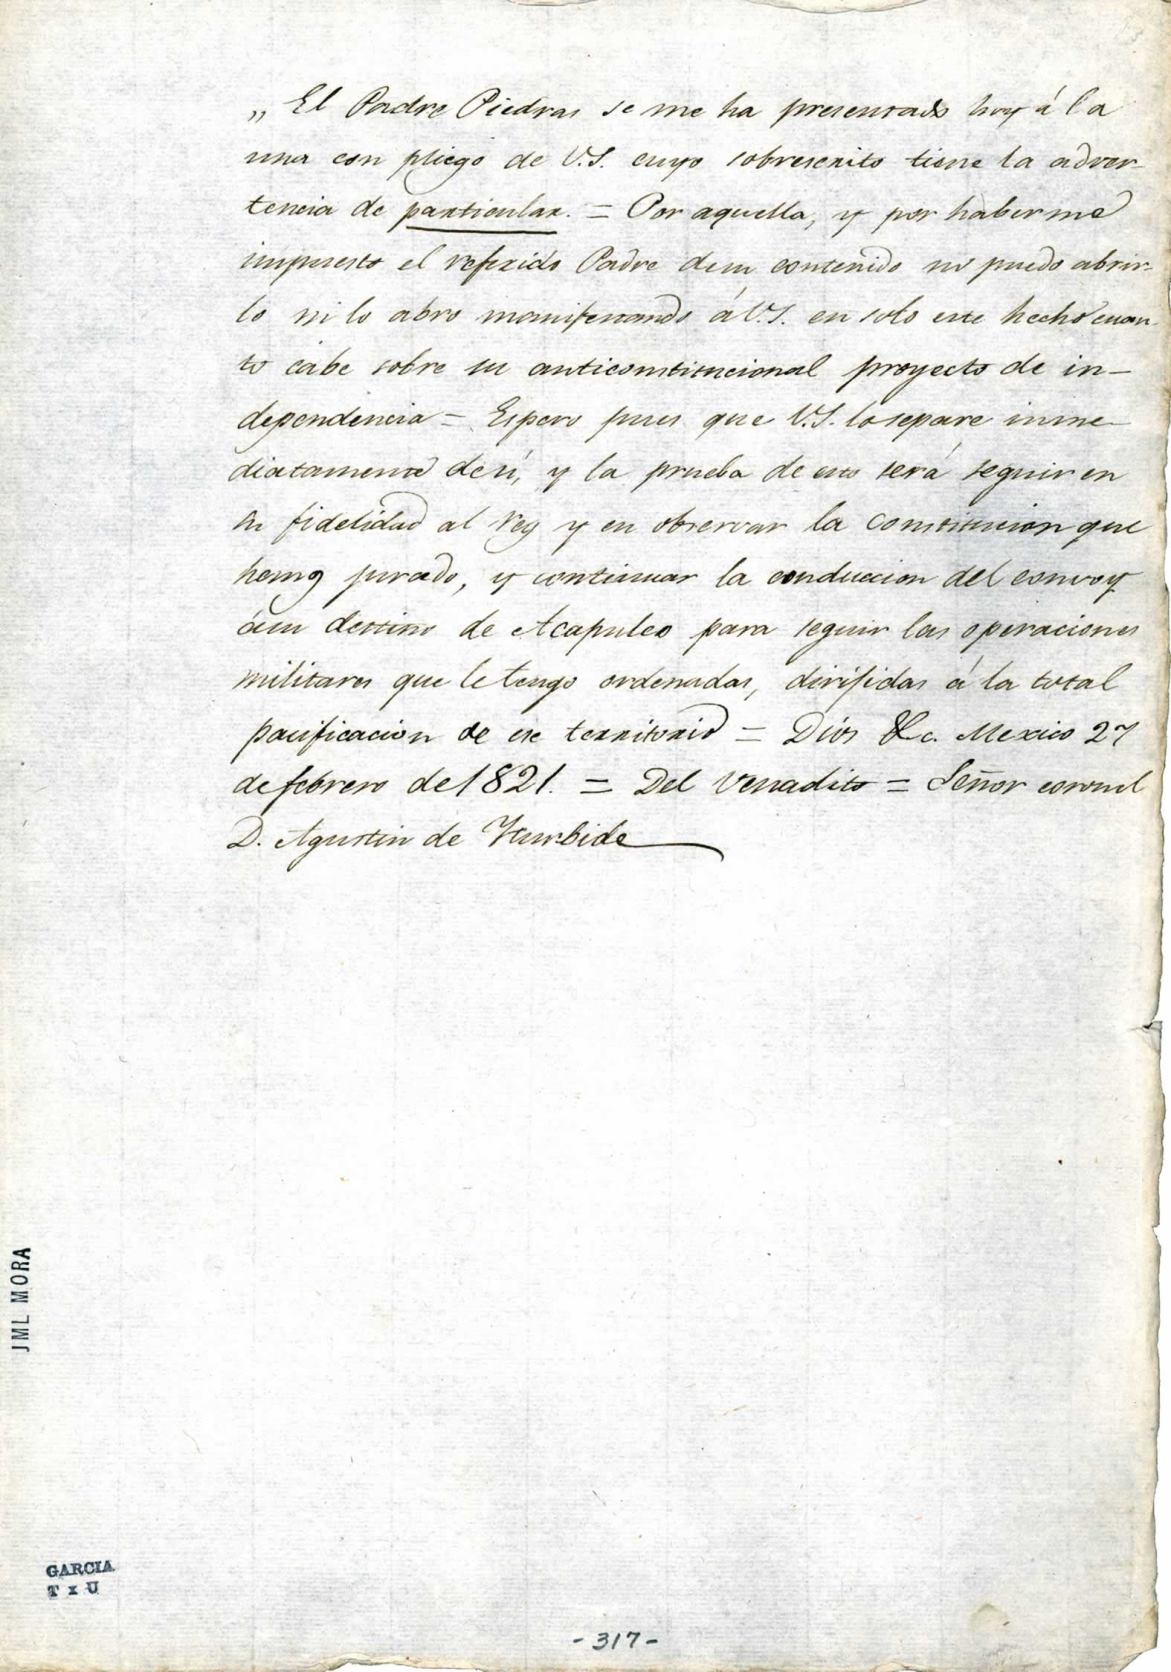 „ El Padre Piedras se me ha presentado hoy á la
una con pliego de V.S. cuyo sobrescrito tiene la adver-
tencia de particular. = Por aquella, y por haberme
impuesto el referido Padre desu contenido no puedo abrir-
lo ni lo abro manifestando á V.S. en solo este hecho cuan-
to cabe sobre su anticonstitucional proyecto de in-
dependencia = Espero pues que V.S. lo separe inme-
diatamente desí, y la prueba de esto será seguir en
su fidelidad al Rey y en observar la constitucion que
hemos jurado, y continuar la conduccion del convoy
ásu destino de Acapulco para seguir las operaciones
militares que le tengo ordenadas, dirijidas á la total
pacificacion de ese territorio = Dios &c. Mexico 27
de febrero de 1821. = Del Venadito = Señor coronel
D. Agustin de Yturbide
JML MORA
GARCIA
T x U
- 317 -